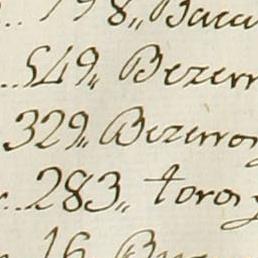 198,, Baca
549,, Bezerr
329,, Bezerros
283,, toros
16